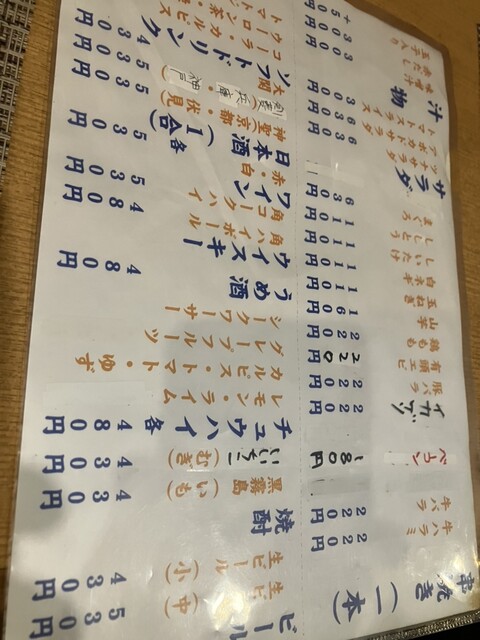 串焼き(一本)
牛ハラミ 220円
牛バラ 220円
ベーコン 180円
イカゲソ 220円
豚バラ 220円
有頭エビ 220円
鶏もも 220円
山芋 160円
玉ねぎ 110円
白ネギ 110円
しいたけ 110円
ししとう 110円
まぐろ 360円
サラダ
ツナサラダ 360円
アボカドサラダ 360円
トマトスライス 300円
汁物
味噌汁 300円
赤だし 300円
玉子入り +50円
ビール
生ビール(中) 530円
生ビール(小) 430円
焼酎
黒霧島(いも) 430円
いいちこ(むぎ) 430円
チュウハイ 各480円
レモン・ライム
カルピス・トマト・ゆず
グレープフルーツ
シークワーサー
うめ酒 480円
ウイスキー
角ハイボール 480円
角コークハイ 530円
ワイン
赤・白
日本酒(1合) 各530円
神聖(京都 伏見)
剣菱(兵庫 神戸)
大関
ソフトドリンク
コーラ・カルピス